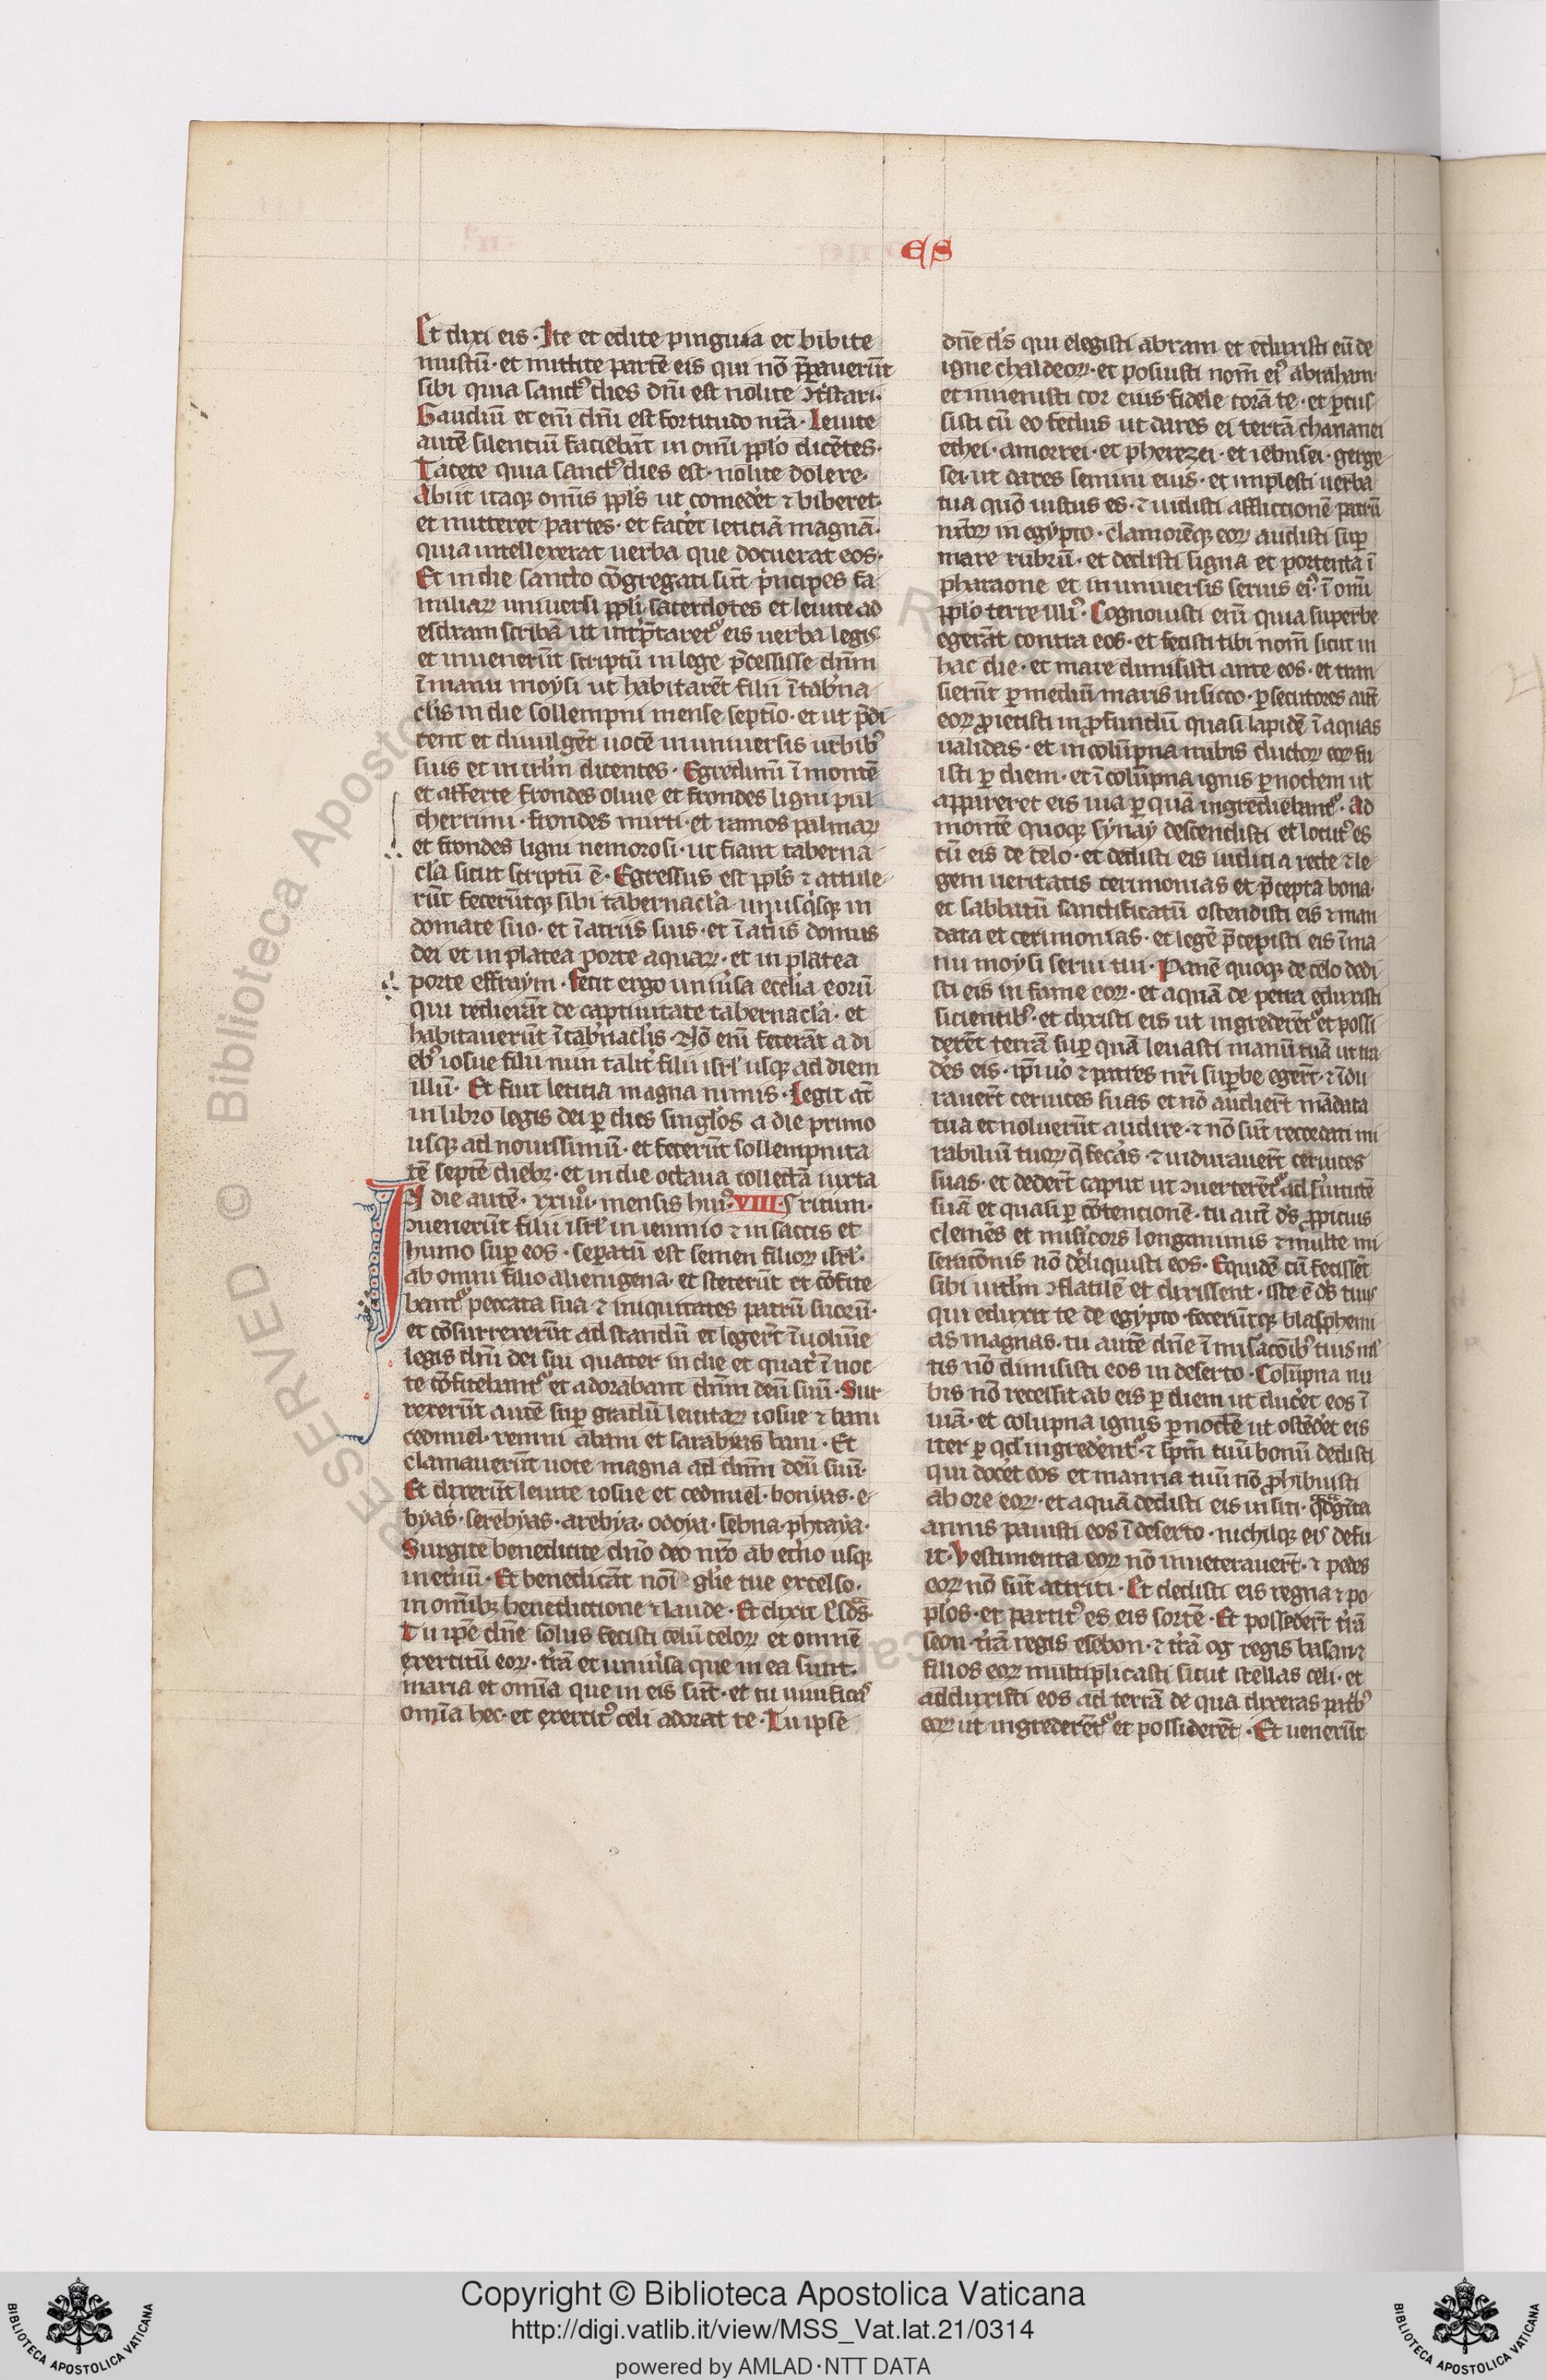 ES
Et dixi eis · Ite et edite pinguia et bibite
mustū · et mittite partē eis qui nō p̄pauerūt
sibi quia sanctꝰ dies dn̄i est nolite ꝯtͥstari ·
Gaudiū et eni dn̄i est fortitudo nr̄a · leuite
autē silenciū faciebāt in om̄i pplo dicētes ·
Tacete quia sanctꝰ dies est · nolite dolere ·
abiit itaqꝫ omīs ppl's ut comedēt ⁊ biberet ·
et mitteret partes · et facet leticiā magnā ·
quia intellexerat uerba que docuerat eos ·
Et in die sancto cōgregati sūt pͥncipes fa
miliaꝝ uniuersi ppli sacerdotes et leuite ad
esdram scribā ut intp̄taretꝰ eis uerba legis
et inuenerūt scriptū in lege p̄cessisse dn̄m
ī manu moysi ut habitarēt filii ī tab'na
clis in die sollempni mense septīo · et ut p̄di
cent et diuulgēt uocē in uniuersis urbibꝰ
suis et in irl'm dicentes · Egredimī ī montē
et afferte frondes oliue et frondes ligni pul
cherrimi · frondes mirti · et ramos palmaꝝ
et frondes ligni nemorosi · ut fiant taberna
cl'a sicut scriptū ē · Egressus est ppl's ⁊ attule
rūt fecerūtqꝫ sibi tabernacl'a unusqͥsqꝫ in
domate suo · et ī atriis suis · et ī atriis domus
dei et in platea porte aquaꝝ · et in platea
porte effraym · fecit ergo uniu'sa eccl'ia eorū
qui redierāt de captiuitate tabernacl'a · et
habitauerūt ī tab'naclis · Nō eni fecerāt a di
ebꝰ iosue filii nun talit' filii isrl' usqꝫ ad diem
illū · Et fuit leticia magna nimis · Legit at̄
in libro legis dei p dies singl'os a die primo
usqꝫ ad nouissimū · et fecerūt sollempnita
tē septē diebꝫ · et in die octaua collectā iuxta
In die autē · xxiiiiͦ · mensis huiꝰ · VIII · ritum ·
ꝯuenerūt filii isrl' in ieiunio ⁊ in saccis et
humo sup eos · sepatū est semen filioꝝ isrl' ·
ab omni filio alienigena · et steterūt et cōfite
bantꝰ peccata sua ⁊ iniquitates patrū suorū ·
et cōsurrexerūt ad standū et legerūt ī uolumīe
legis dn̄i dei sui quater in die et quat' ī noc
te cōfitebantꝰ et adorabant dn̄m deū suū · Sur
rexerūt autē sup gradū leuitaꝝ iosue ⁊ bani
cedmiel · remni abani et sarabias bani · Et
clamauerūt uoce magna ad dn̄m deū suū ·
Et dixerūt leuite iosue et cedmiel · bonyas · e
byas · serebyas · arebya · odoya · sebna · phtaya ·
Surgite benedicite dn̄o deo nr̄o ab et'no usqꝫ
in et'nū · Et benedicāt noī gl'ie tue excelso ·
in om̄ibꝫ benedictione ⁊ laude · Et dixit esdͣs ·
Tu ip̄e dn̄e solus fecisti celū celoꝝ et omnē
exercitū eoꝝ · t'rā et uniu'sa que in ea sunt ·
maria et om̄ia que in eis sūt · et tu uiuificas
om̄ia hec · et exercitꝰ celi adorat te · Tu ipse
dn̄e d's qui elegisti abram et eduxisti eū de
igne chaldeoꝝ · et posuisti nom̄ eiꝰ abraham
et inuenisti cor eius fidele corā te · et ꝑcus
sisti cū eo fedus ut dares ei terrā chananei
ethei · amorrei · et pherezei · et iebusei · gerge
sei · ut dares semini eius · et implesti uerba
tua quō iustus es · ⁊ uidisti afflictionē patrū
nr̄oꝝ in egypto · clamorēqꝫ eoꝝ audisti sup
mare rubrū · et dedisti signa et portenta ī
pharaone et in uniuersis seruis eiꝰ · ī om̄i
pplo terre illiꝰ · Cognouisti eni quia superbe
egerāt contra eos · et fecisti tibi nom̄ sicut in
hac die · et mare diuisisti ante eos · et tran
sierūt p mediū maris in sicco · psecutores aūt
eoꝝ ꝓiecisti in ꝓfundū quasi lapidē ī aquas
ualidas · et in colūpna nubis ductor eoꝝ fu
isti p diem · et ī colūpna ignis p noctem ut
appareret eis uia p quā ingrediebantꝰ · Ad
montē quoqꝫ synay descendisti et locutꝰ es
cū eis de celo · et dedisti eis iudicia recte ⁊ le
gem ueritatis cerimonias et p̄cepta bona ·
et sabbatū sanctificatū ostendisti eis ⁊ man
data et cerimonias · et legē p̄cepisti eis ī ma
nu moysi serui tui · Panē quoqꝫ de celo dedi
sti eis in fame eoꝝ · et aquā de petra eduxisti
sicientibꝰ · et dixisti eis ut ingrederētꝰ et possi
derēt terrā sup quā leuasti manū tuā ut tra
d'es eis · ip̄i u'o ⁊ patres nr̄i supbe egerūt · ⁊ īdu
rauerūt ceruices suas et nō audierūt mādata
tua et noluerūt audire · ⁊ nō sūt recordati mi
rabiliū tuoꝝ q̄ fecͣas · ⁊ indurauerūt ceruices
suas · et dederūt caput ut ꝯuerterētꝰ ad s'uitutē
suā et quasi p cōtentionē · tu aūt d's ꝓpitius
clemēs et mis'icors longanimis ⁊ multe mi
seracōnis nō d'eliquisti eos · Equidē cū fecissēt
sibi uitl'm ꝯflatilē et dixissent · iste ē d's tuus
qui eduxit te de egypto · fecerūtqꝫ blasphemi
as magnas · tu autē dn̄e ī mis'acōibꝰ tuis ml'
tis nō dimisisti eos in deserto · Colūpna nu
bis nō recessit ab eis p diem ut duc'et eos ī
uiā · et colupna ignis p noctē ut ostēdet eis
iter p qd' ingred'entꝰ · ⁊ sp̄m tuū bonū dedisti
qui doc'et eos et manna tuū nō ꝓhibuisti
ab ore eoꝝ · et aquā dedisti eis in siti · qͣdragīta
annis pauisti eos ī deserto · nichilqꝫ eis defu
it · Vestimenta eoꝝ nō inueterauerūt · ⁊ pedes
eoꝝ nō sūt attriti · Et dedisti eis regna ⁊ po
pl'os · et partitꝰ es eis sortē · Et possederūt t'rā
seon · t'rā regis esebon · ⁊ t'rā og regis basan ⁊
filios eoꝝ multiplicasti sicut stellas celi · et
adduxisti eos ad terrā de qua dixeras pr̄ibꝰ
eoꝝ ut ingrederētꝰ et possiderēt · Et uenerūt
RESERVED © Biblioteca Aposto
Copyright © Biblioteca Apostolica Vaticana
http://digi.vatlib.it/view/MSS_Vat.lat.21/0314
powered by AMLAD·NTT DATA
BIBLIOTECA APOSTOLICA VATICANA
BIBLIOTECA APOSTOLICA VATICANA